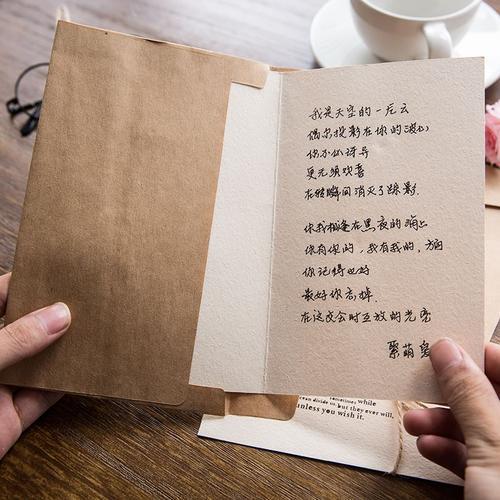 我是天空的一片云
偶尔投影在你的波心
你不必讶异
更无须欢喜
在转瞬间消灭了踪影.
你我相逢在黑夜的海上
你有你的，我有我的，方向
你记得也好
最好你忘掉.
在这交会时互放的光亮
聚萌
sometimes while
divide us, but they ever will,
unless you wish it.